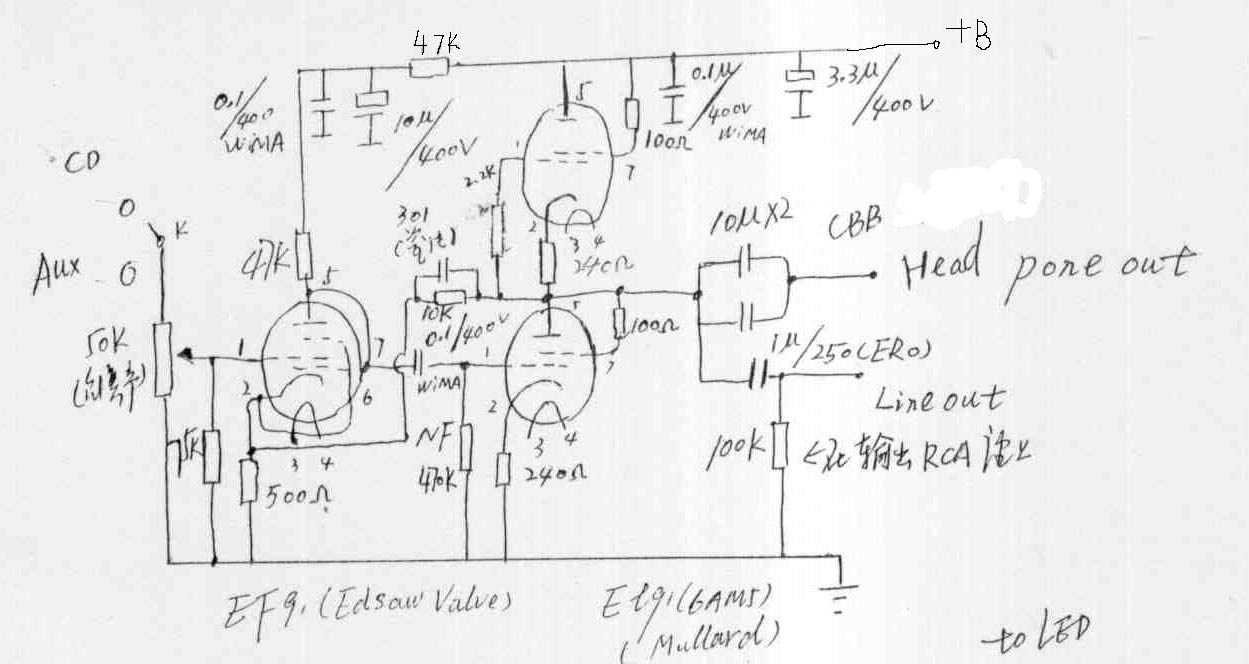 47K
+B
0.1/400
WiMA
10µ/400V
5
0.1µ/400V
WiMA
3.3µ/400V
100Ω
CD
1
7
2.2K
K
301
2
3 4
240Ω
10µX2
CBB
Aux
47K
5
Head pone out
10K
0.1/400V
5
100Ω
50K
1
7
1
7
1µ/250(ERO)
WiMA
2
6
2
Line out
5K
3 4
NF
470K
3 4
240Ω
100K
输出RCA
500Ω
EF91(Edsaw Valve)
E191(6AM5)
(Mullard)
to LED